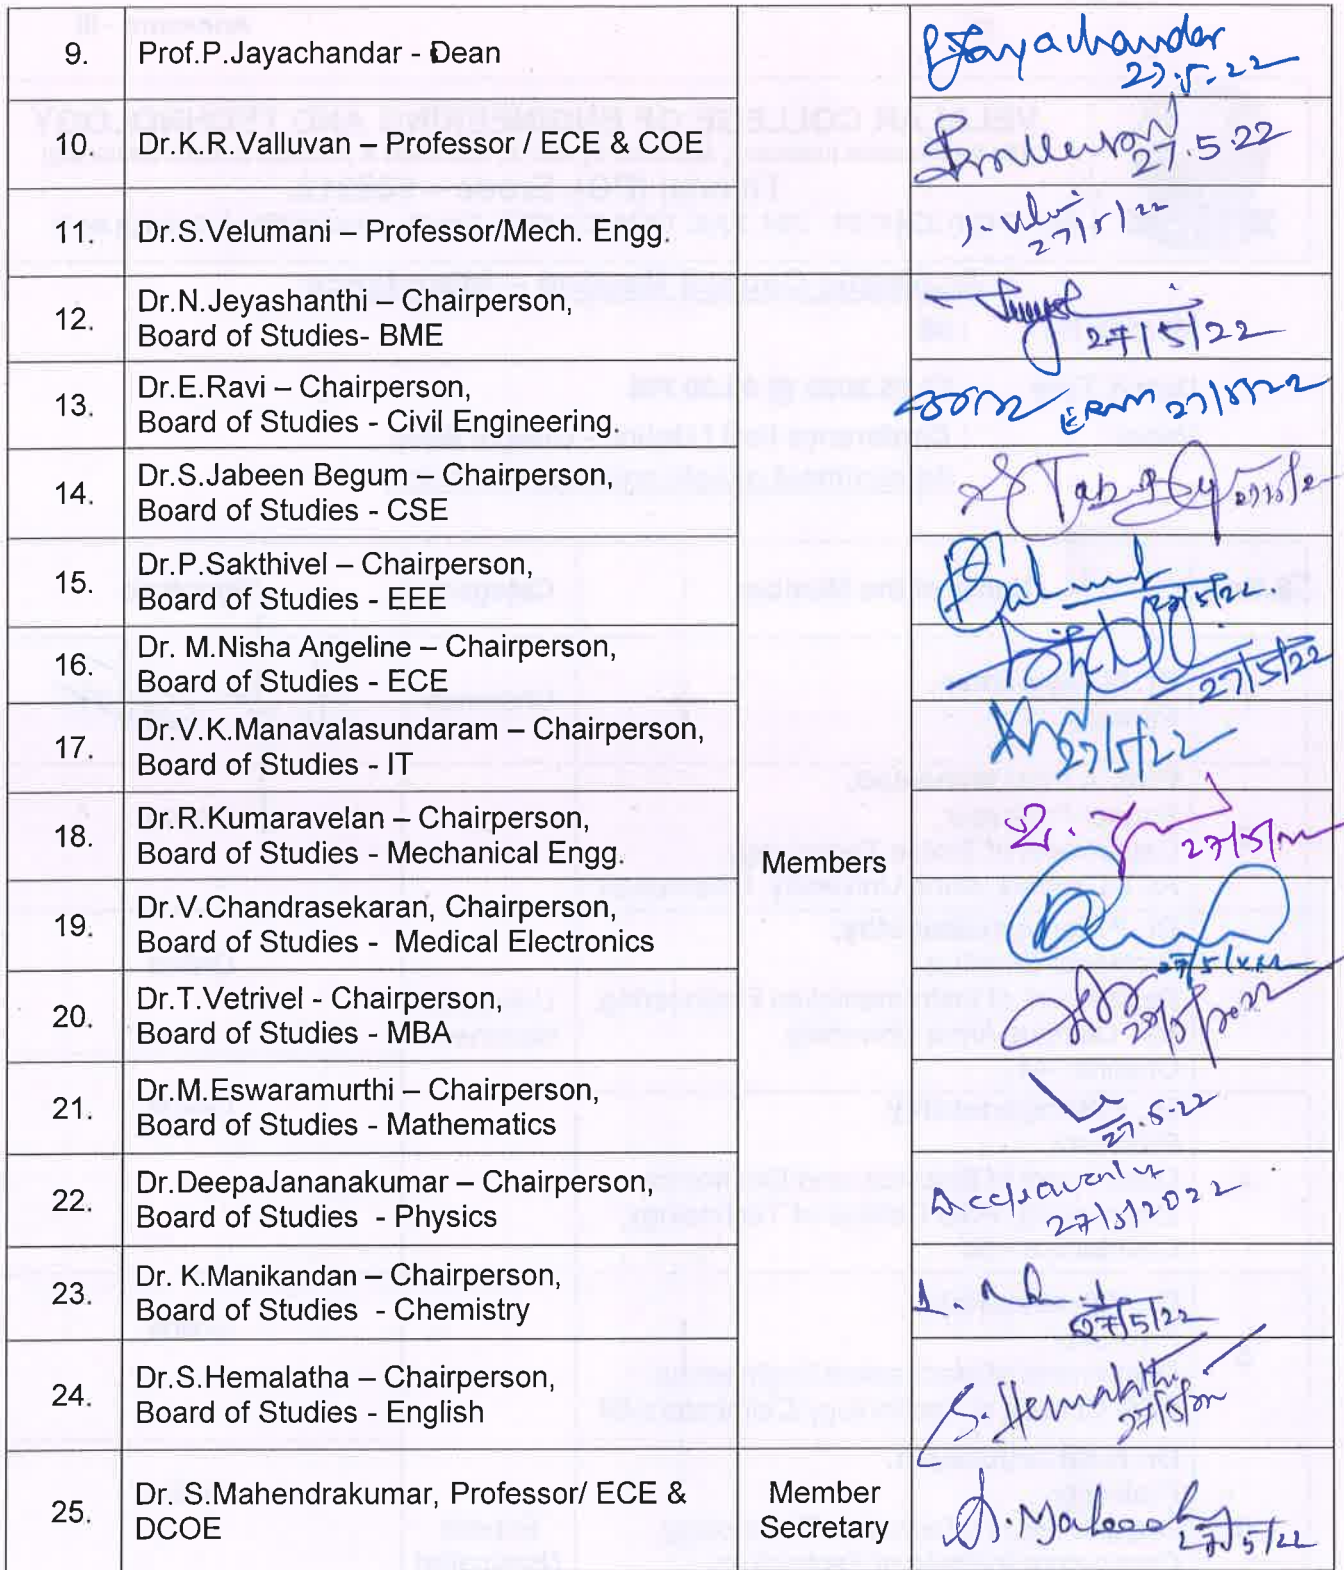 9. Prof.P.Jayachandar - Dean
PJayachandar
27.5.22
10. Dr.K.R.Valluvan – Professor / ECE & COE
27.5.22
11. Dr.S.Velumani – Professor/Mech. Engg.
27/5/22
12. Dr.N.Jeyashanthi – Chairperson,
Board of Studies- BME
27/5/22
13. Dr.E.Ravi – Chairperson,
Board of Studies - Civil Engineering.
27/5/22
14. Dr.S.Jabeen Begum – Chairperson,
Board of Studies - CSE
15. Dr.P.Sakthivel – Chairperson,
Board of Studies - EEE
27/5/22.
16. Dr. M.Nisha Angeline – Chairperson,
Board of Studies - ECE
27/5/22
17. Dr.V.K.Manavalasundaram – Chairperson,
Board of Studies - IT
27/5/22
18. Dr.R.Kumaravelan – Chairperson,
Board of Studies - Mechanical Engg.
27/5/22
Members
19. Dr.V.Chandrasekaran, Chairperson,
Board of Studies - Medical Electronics
20. Dr.T.Vetrivel - Chairperson,
Board of Studies - MBA
27/5/2022
21. Dr.M.Eswaramurthi – Chairperson,
Board of Studies - Mathematics
27.5.22
22. Dr.DeepaJananakumar – Chairperson,
Board of Studies - Physics
27/5/2022
23. Dr. K.Manikandan – Chairperson,
Board of Studies - Chemistry
27/5/22
24. Dr.S.Hemalatha – Chairperson,
Board of Studies - English
S.Hemalatha
27/5/22
25. Dr. S.Mahendrakumar, Professor/ ECE &
DCOE
Member
Secretary
27/5/22